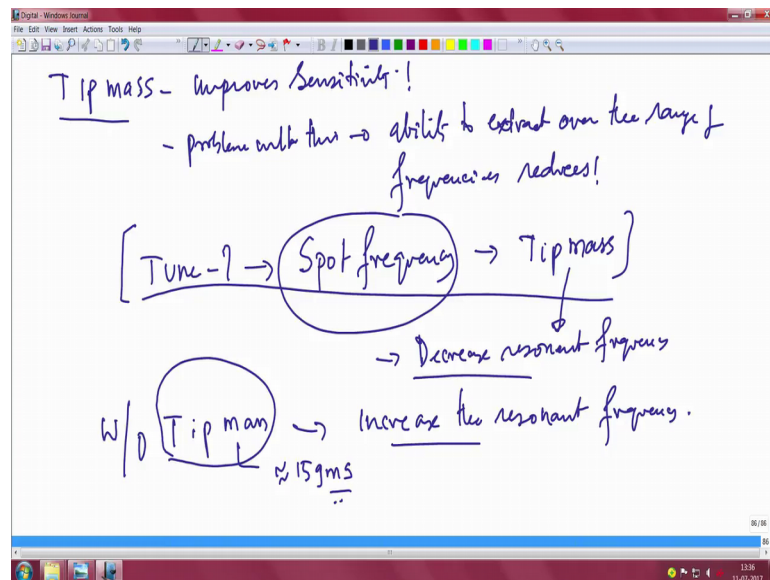 Digital - Windows Journal
File Edit View Insert Actions Tools Help
Tip mass - improves Sensitivity!
- problem with this → ability to extract over the range of
frequencies reduces!
[Tune-? → Spot frequency → Tip mass]
→ Decrease resonant frequency
W/O Tip mass → Increase the resonant frequency.
≈ 15gms
86/86
86
13:36
11-07-2017